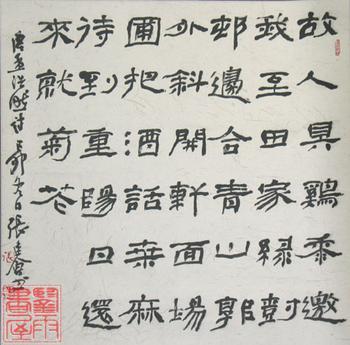 故人具鷄黍邀
我至田家緑樹
邨邊合青山郭
外斜開軒面場
圃把酒話桒麻
待到重陽日還
來就菊花
唐孟浩然詩 冬日張